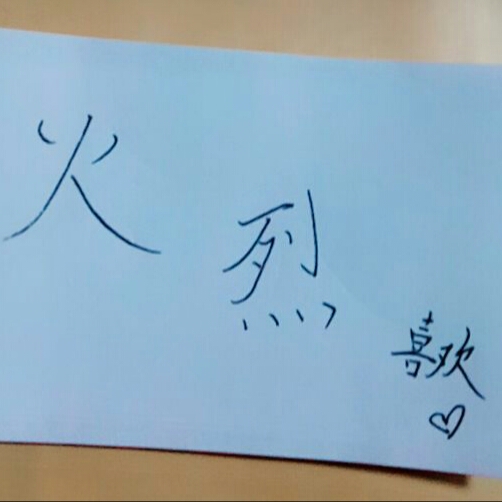 火
烈
喜欢